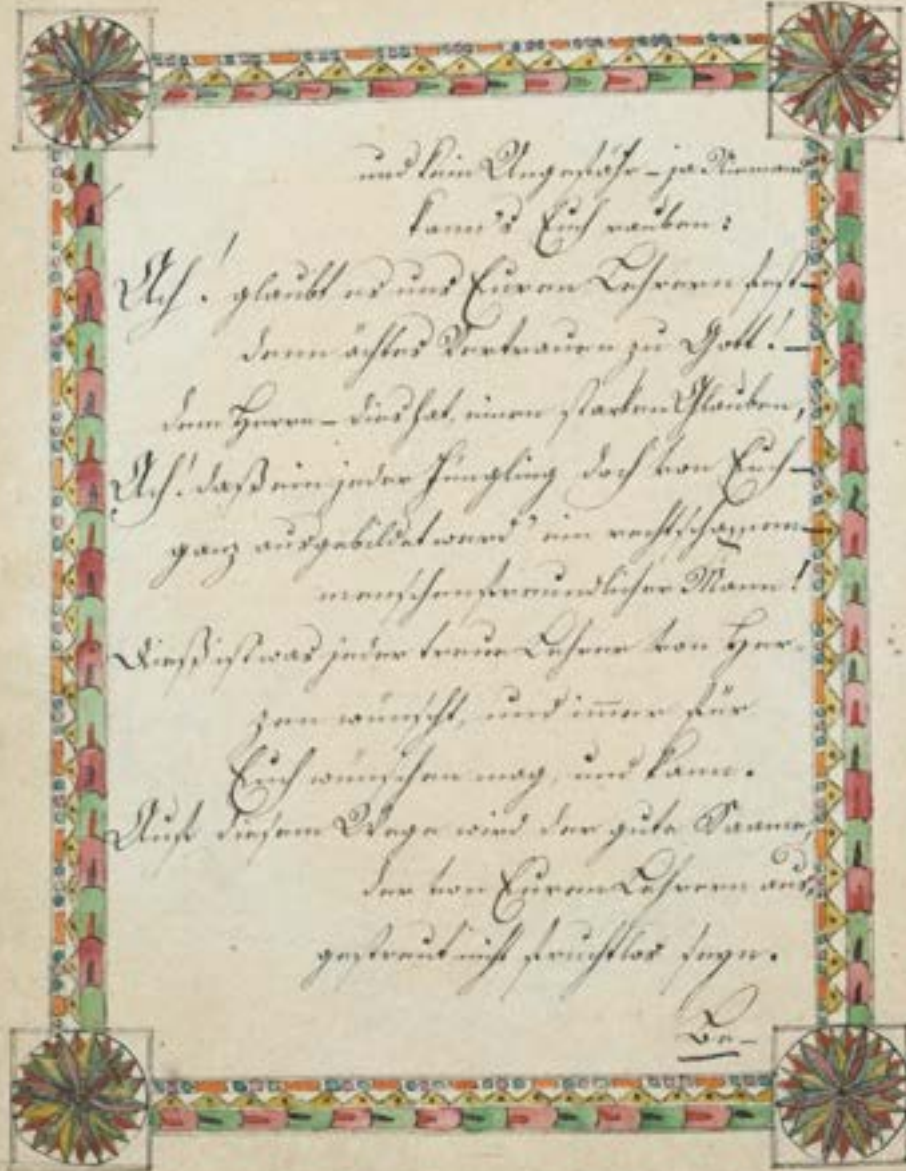 und kein Ungefähr – ja Nieman
kann's Euch rauben:
Ach! glaubt es uns Euren Lehrern fest –
denn ächtes Vertrauen zu Gott! –
dem Herrn – dies hat, einen starken Glauben,
Ach! daß ein jeder Jüngling doch von Euch –
ganz ausgebildet werd' ein rechtschaffen
menschenfreundlicher Mann!
Dieß ist was jeder treue Lehrer von Her-
zen wünscht, und im̅er für
Euch wünschen mag, und kann.
Auf diesem Wege wird der gute Saame,
der von Euren Lehrern aus
gestreut nicht fruchtlos seyn.
Be-